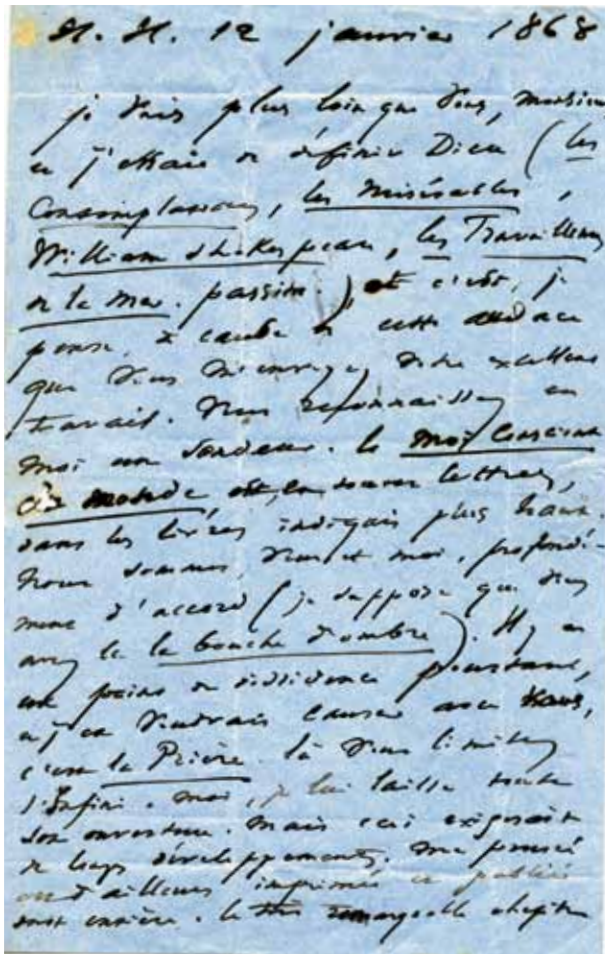 H. H. 12 janvier 1868
je vais plus loin que vous, monsieur
et j'essaie de définir Dieu (les
Contemplations, les Misérables,
William Shakespeare, les Travailleurs
de la mer. passim.) et c'est, je
pense, à cause de cette audace
que vous m'envoyez votre excellent
travail. Vous reconnaissez en
moi un sondeur. le moi conscient
du monde, est, en toutes lettres,
dans les livres indiqués plus haut.
nous sommes, vous et moi, profondé-
ment d'accord (je suppose que vous
avez lu la bouche d'ombre). Il y a
un point de dissidence pourtant,
et j'en voudrais causer avec vous,
c'est la Prière. là vous limitez
l'Infini. moi, je lui laisse toute
son ouverture. mais ceci exigerait
de longs développements. Ma pensée
est d'ailleurs imprimée et publiée
tout entière. le très remarquable chapitre